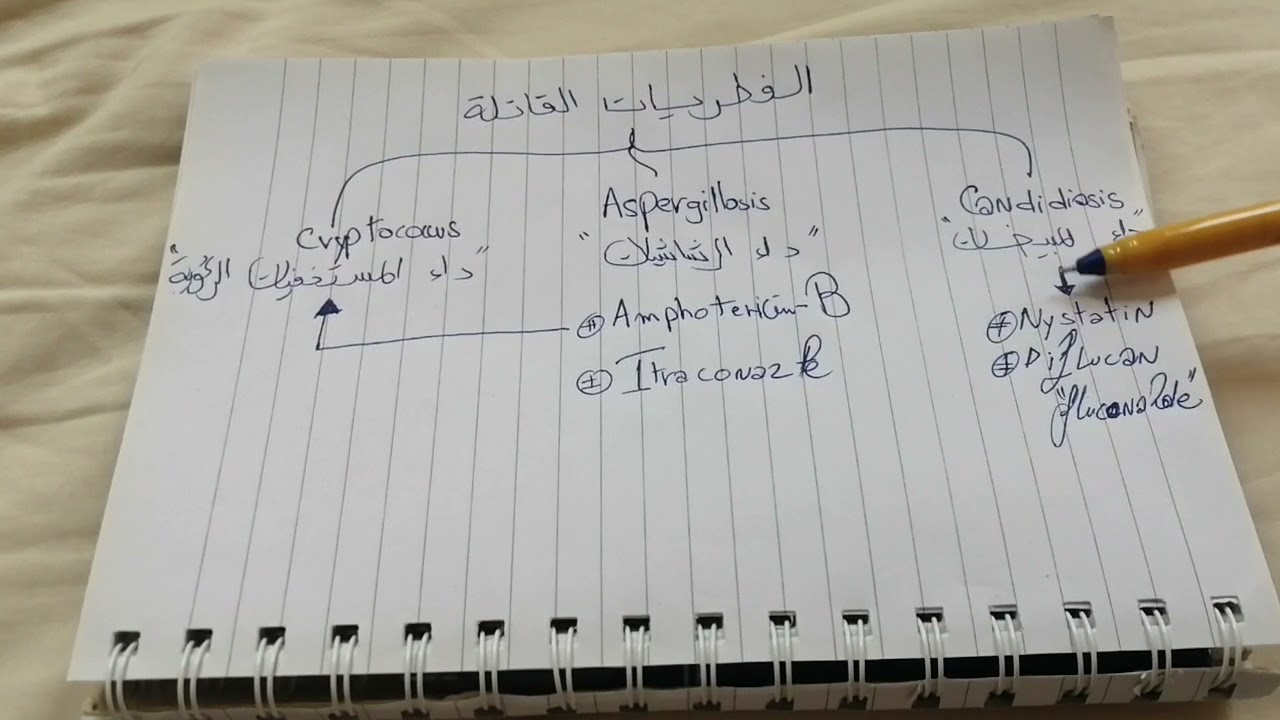 الفطريات القاتلة
Candidiasis
"داء المبيضات"
⊕ Nystatin
⊕ Diflucan
"fluconazole"
Aspergillosis
"داء الرشاشيات"
⊕ Amphotericin-B
⊕ Itraconazole
Cryptococcus
"داء المستخفيات الرئوية"